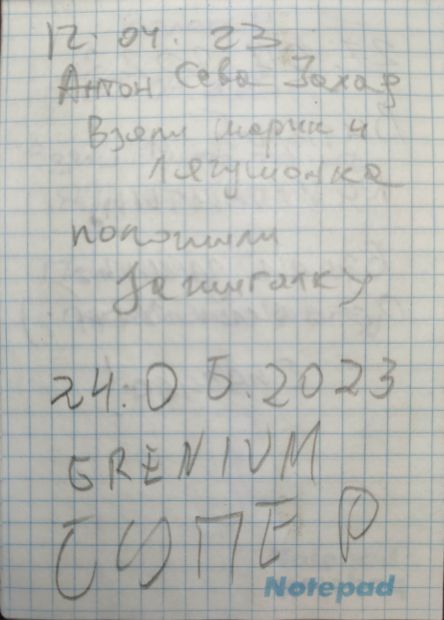 12.04.23
Антон Сева Захар
Взяли шарик и
лягушонка
положили
Зажигалку
24.05.2023
GRENIUM
СУПЕР
Notepad